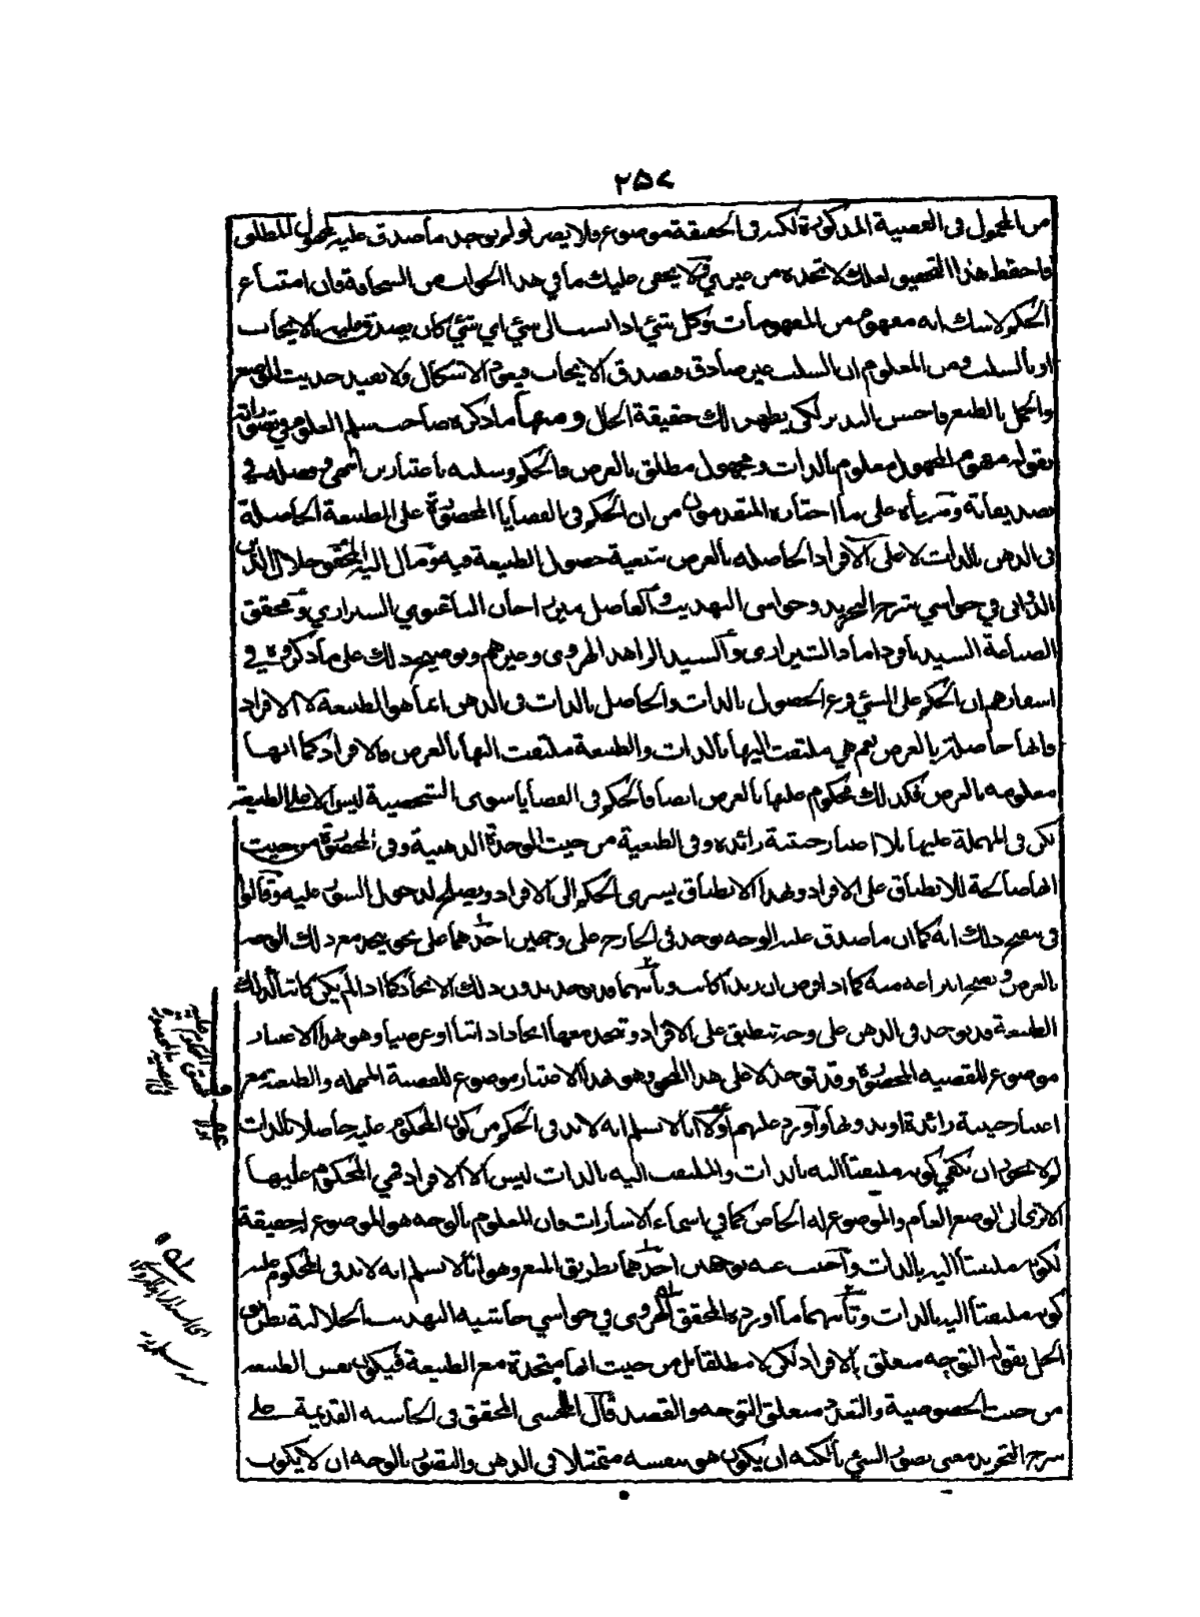 ٢٥٧
من المحمول في القضية المذكورة لكنه في الحقيقة موضوع فلا يضر لو لم يوجد ما صدق عليه المجهول المطلق
فاحفظ هذا التحقيق لعلك لا تجده من غيري لا يخفى عليك ما في هذا الجواب من السخافة فان امتناع
الحكم لا شك انه مفهوم من المفهومات وكل شيء اذا نسب الى شيء اي شيء كان يصدق عليه بالايجاب
او بالسلب ومن المعلوم ان السلب غير صادق فصدق الايجاب فيعود الاشكال ولا يفيد حديث الموضع
والحمل بالطبع فاحسن التدبر لكي يظهر لك حقيقة الحال ومنها ما ذكره صاحب سلم العلوم في تصوراته
بقوله مفهوم المجهول معلوم بالذات ومجهول مطلق بالعرض فالحكم وسلبه باعتبارين انتهى وفصله في
تصديقاته ومبناه على ما اختاره المتقدمون من ان الحكم في القضايا المحصورة على الطبيعة الحاصلة
في الذهن بالذات لا على الافراد الحاصلة بالعرض بتبعية حصول الطبيعة فيه ومال اليه المحقق جلال الدين
الدواني في حواشي شرح التجريد وحواشي التهذيب والفاضل ميرزا جان الباغنوي الشيرازي ومحقق
الصناعة السيد باقر داماد والشيرازي والسيد الزاهد الهروي وغيرهم وتوضيح ذلك على ما ذكروه في
اسفارهم ان الحكم على الشيء فرع الحصول بالذات والحاصل بالذات في الذهن انما هو الطبيعة لا الافراد
فانها حاصلة بالعرض نعم هي ملتفت اليها بالذات والطبيعة ملتفت اليها بالعرض فالافراد كما انها
معلومة بالعرض فكذلك محكوم عليها بالعرض ايضا فالحكم في القضايا سوى الشخصية ليس الا على الطبيعة
لكن في المهملة عليها بلا اعتبار حيثية زائدة وفي الطبعية من حيث الوحدة الذهنية وفي المحصورة من حيث
انها صالحة للانطباق على الافراد وبهذا الانطباق يسرى الحكم الى الافراد ويصلح لدخول السور عليه وقالوا
في توضيح ذلك انه كما ان ما صدق عليه الوجه يوجد في الخارج على وجهين احدهما على نحو يتحد مع ذلك الوجه
بالعرض و انتزاعه منه كما اذا فرض ان زيدا كاتب وثانيهما قد يوجد بدون ذلك الاتحاد كما اذا لم يكن كاتبا كذلك
الطبيعة قد يوجد في الذهن على وجه تنطبق على الافراد وتتحد معها اتحادا ذاتيا او عرضيا وهو بهذا الاعتبار
موضوع للقضية المحصورة وقد توجد لا على هذا النحو وهو بهذا الاعتبار موضوع للقضية المهملة والطبيعة مع
اعتبار حيثية زائدة او بدونها واورد عليهم اولا بانا لا نسلم انه لا بد في الحكم من كون المحكوم عليه حاصلا بالذات
لم لا يجوز ان يكفي كونه ملتفتا اليه بالذات والملتفت اليه بالذات ليس الا الافراد فهي المحكوم عليها
الا ترى الى الوضع العام والموضوع له الخاص كما في اسماء الاشارات فان المعلوم بالوجه هو الموضوع له حقيقة
لكونه ملتفتا اليه بالذات واجيب عنه بوجهين احدهما بطريق المنع وهو انا لا نسلم انه لا بد في المحكوم عليه
كونه ملتفتا اليه بالذات وثانيهما ما اورده المحقق الهروي في حواشي حاشيه التهذيب الجلالية بطريق
الحل بقوله التوجه متعلق بالافراد لكن لا مطلقا بل من حيث انها متحدة مع الطبيعة فيكون نفس الطبيعة
من حيث الخصوصية والتعدد متعلق التوجه والقصد قال المحشى المحقق في الحاشيه القديمة على
شرح التجريد معنى تصور الشيء بالكنه ان يكون هو بنفسه متمثلا في الذهن والتصور بالوجه ان لا يكون